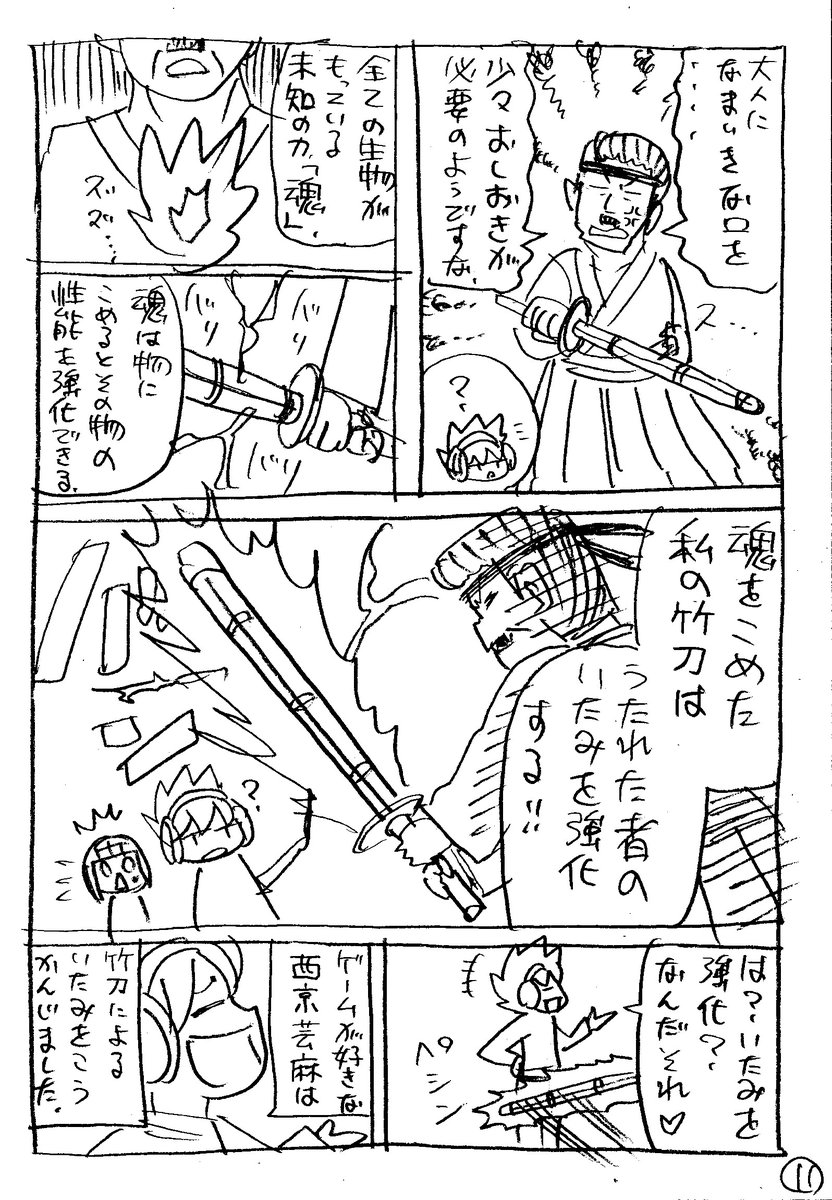 大人に
なまいきな口を
・・・・・
少々おしおきが
必要のようですな。
ス・・・
?
全ての生物が
もっている
未知の力「魂」。
ズズ・・・
バリ
バリ
バリ
バリ
魂は物に
こめるとその物の
性能を強化できる。
魂をこめた
私の竹刀は
うたれた者の
いたみを強化
する!!
?
は?いたみを
強化?
なんだそれ♡
ペシン
ゲームが好きな
西京芸麻は
竹刀による
いたみをこう
かんじました。
11